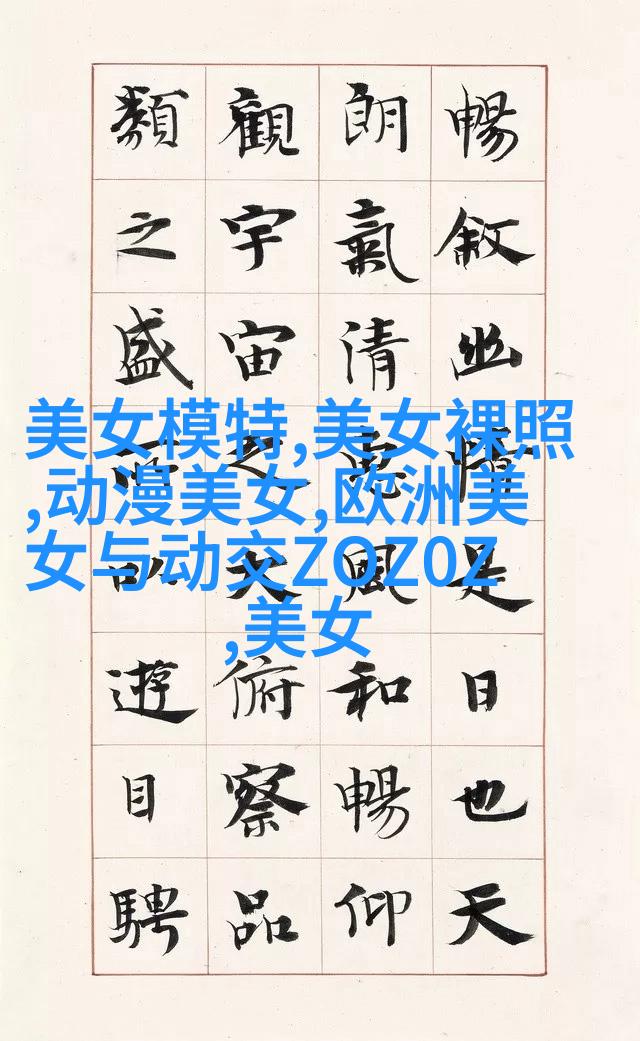 暢敘幽情是日也天
朗氣清惠風和暢仰
觀宇宙之大俯察品
類之盛所以遊目騁
美女模特,美女裸照
,动漫美女,欧洲美
女与动交ZOZ0Z
,美女